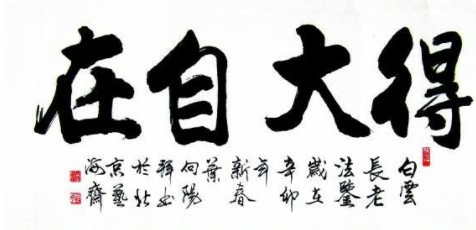 得大自在
白雲
長老
法鑒
歲在
辛卯
年
新春
葉
向陽
拜書
於北
京藝
海齋